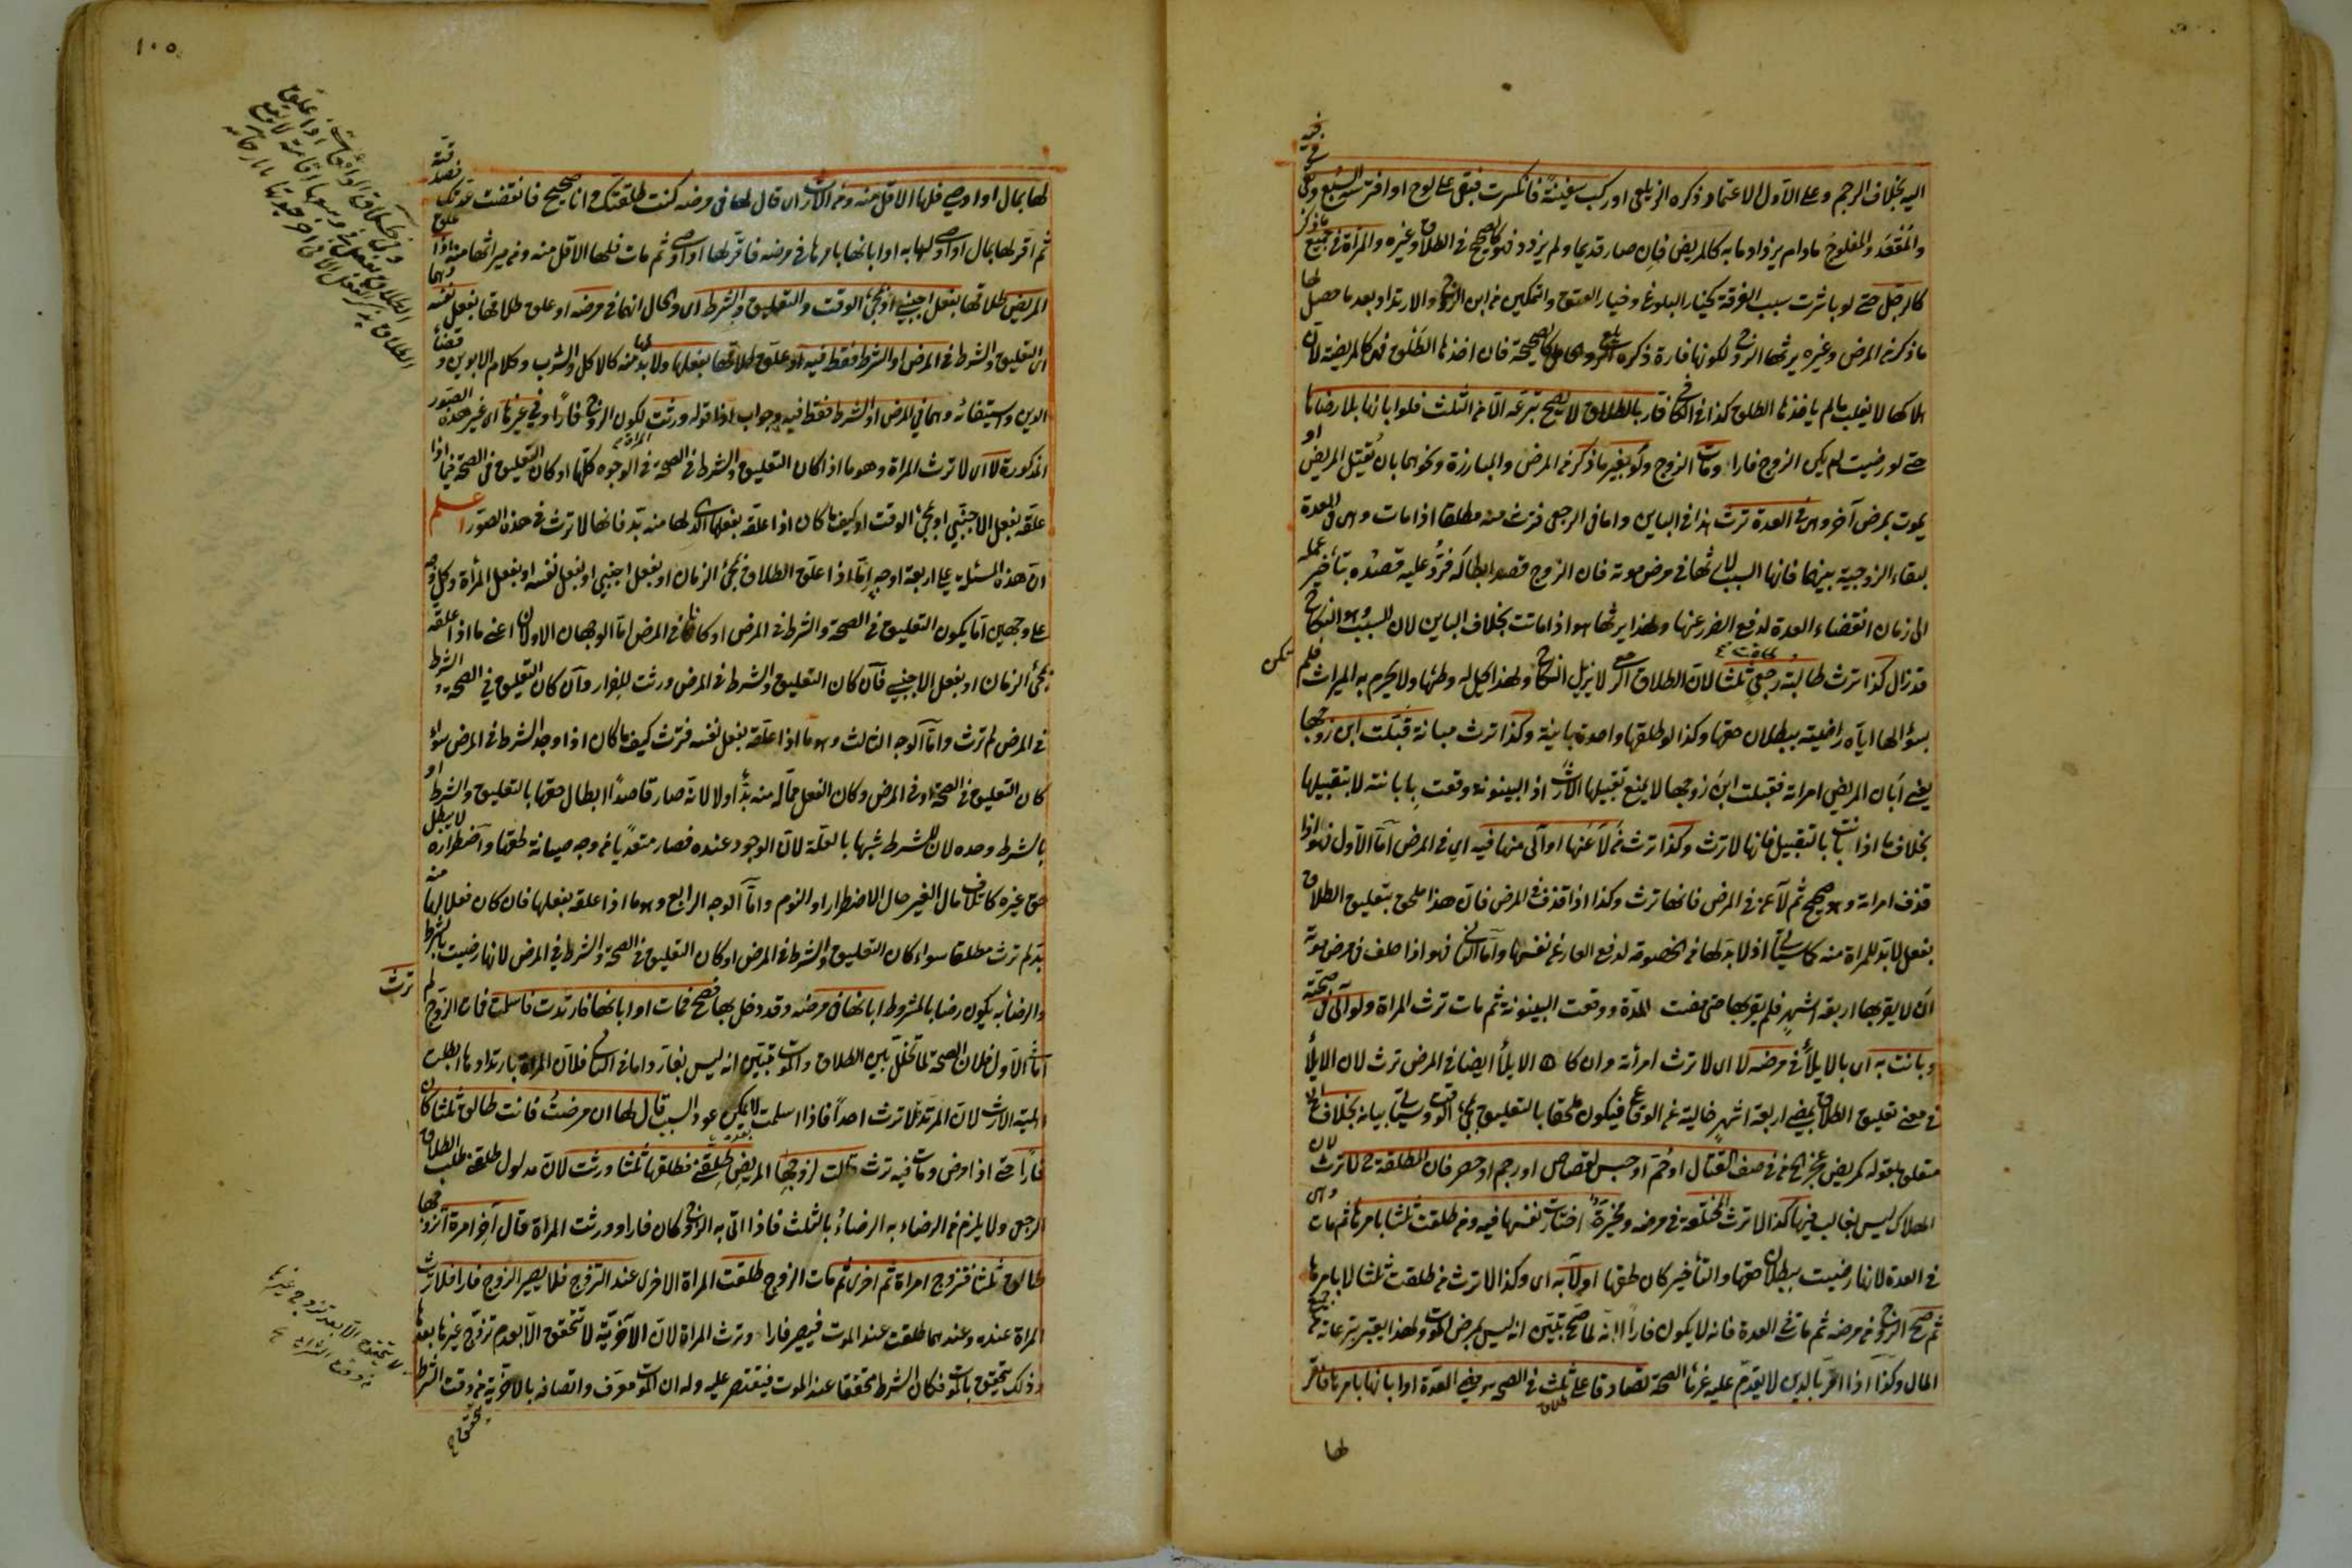 اليه بخلاف الرجم وعلى الاول الاعتماد ذكره الزيلعي او ركب سفينة فانكسرت فبقي على لوح او افترسه السبع وبقي في فيه
والمقعد والمفلوج مادام يزداد ما به كالمريض فان صار قديما ولم يزدد فهو كالصحيح في الطلاق وغيره والمرأة في جميع ما ذكر
كالرجل حتى لو باشرت سبب الفرقة كخيار البلوغ وخيار العتق والتمكين من ابن الزوج والارتداد بعد ما حصل لها
ما ذكر من المرض وغيره يرثها الزوج لكونها فارة ذكره الزيلعي والحامل كالصحيحة فان اخذها الطلق فكالمريضة لان
هلاكها لا يغلب ما لم ياخذها الطلق كذا في الكافي فار بالطلاق لا يصح تبرعه الا من الثلث فلو ابانها بلا رضاها
حتى لو رضيت لم يكن الزوج فارا ومات الزوج ولو بغير ما ذكر من المرض والمبارزة ونحوهما بان يقتل المريض او
يموت بمرض آخر وهي في العدة ترث هذا في الباين واما في الرجعي فترث منه مطلقا اذا مات وهي في العدة
لبقاء الزوجية بينهما فانها السبب لارثها في مرض موته فان الزوج قصد ابطاله فرد عليه قصده بتأخير عمله
الى زمان انقضاء العدة لدفع الضرر عنها ولهذا يرثها هو اذا ماتت بخلاف الباين لان السبب وهو النكاح
قد زال كذا ترث طالبة رجعي طلقت ثلثا لان الطلاق الرجعي لا يزيل النكاح ولهذا يحل له وطئها ولا يحرم به الميراث فلم تكن
بسؤالها اياه راضيته ببطلان حقها وكذا لو طلقها واحدة باينة وكذا ترث مبانة قبلت ابن زوجها
يعني ابان المريض امراته فقبلت ابن زوجها لا يمنع تقبيلها الارث اذ البينونة وقعت بابانته لا بتقبيلها
بخلاف ما اذا بانت بالتقبيل فانها لا ترث وكذا ترث من لاعنها او آلى منها فيه اي في المرض اما الاول فهو اذا
قذف امراته وهو صحيح ثم لاعن في المرض فانها ترث وكذا اذا قذف في المرض فان هذا ملحق بتعليق الطلاق
بفعل لا بد للمراة منه كما سيأتي اذ لا بد لها من الخصومة لدفع العار عن نفسها واما الثاني فهو اذا حلف في مرض موته
ان لا يقربها اربعة اشهر فلم يقربها حتى مضت المدة ووقعت البينونة ثم مات ترث المراة ولو آلى في صحته
وبانت به اي بالايلاء في مرضه لا اي لا ترث امرأته وان كان الايلاء ايضا في المرض ترث لان الايلاء
في معنى تعليق الطلاق بمضي اربعة اشهر خالية عن الوقاع فيكون ملحقا بالتعليق بمجيء الوقت وسيأتي بيانه بخلاف
متعلق بقوله كمريض عجز الخ من في صف القتال او حم او حبس لقصاص او رجم او حصر فان المطلقة ح لا ترث لان
الهلاك ليس بغالب فيها كذا لا ترث المختلعة في مرضه ومخيرة اختارت نفسها فيه ومن طلقت ثلثا بامرها ثم مات وهي
في العدة لانها رضيت ببطلان حقها والتأخير كان لحقها او لا به اي وكذا لا ترث من طلقت ثلثا لا بامرها
ثم صح الزوج من مرضه ثم مات في العدة فانه لا يكون فارا لانه لما صح تبين انه ليس بمرض الموت ولهذا يعتبر تبرعاته من جميع
المال وكذا اذا اقر بالدين لا يقدم عليه غرماء الصحة تصادقا على ثلث في الصحة ومضي العدة او ابانها بامرها فاقر
لها
١٠٥
لها بمال او اوصى فلها الاقل منه ومن الارث اي قال لها في مرضه كنت طلقتك وانا صحيح فانقضت عدتك فصدقته
ثم اقر لها بمال او اوصى لها به او ابانها بامرها في مرضه فاقر لها او اوصى ثم مات فلها الاقل منه ومن ميراثها منه اذا علق
المريض طلاقها بفعل اجنبي او بمجيء الوقت والتعليق والشرط اي والحال انهما في مرضه او علق طلاقها بفعل نفسه وهما
اي التعليق والشرط في المرض او الشرط فقط فيه او علق طلاقها بفعلها ولا بد لها منه كالاكل والشرب وكلام الابوين وقضاء
الدين واستيفائه وهما في المرض او الشرط فقط فيه وجواب اذا قوله ورثت لكون الزوج فارا وفي غيرها اي غير هذه الصور
المذكورة لا اي لا ترث المراة وهو ما اذا كان التعليق والشرط في الصحة في الوجوه كلها او كان التعليق في الصحة فيما اذا
علقه بفعل الاجنبي او بمجيء الوقت او كيف ما كان اذا علقه بفعلها الذي لها منه بد فانها لا ترث في هذه الصور اعلم
ان هذه المسئلة على اربعة اوجه اما اذا علق الطلاق بمجيء الزمان او بفعل اجنبي او بفعل نفسه او بفعل المرأة وكل وجه
على وجهين اما يكون التعليق في الصحة والشرط في المرض او كانا في المرض اما الوجهان الاولان اعني ما اذا علقه
بمجيء الزمان او بفعل الاجنبي فان كان التعليق والشرط في المرض ورثت للفرار وان كان التعليق في الصحة والشرط
في المرض لم ترث واما الوجه الثالث وهو ما اذا علقه بفعل نفسه فترث كيف ما كان اذا وجد الشرط في المرض سواء
كان التعليق في الصحة او في المرض وكان الفعل مما له منه بد او لا لانه صار قاصدا ابطال حقها بالتعليق والشرط او
بالشرط وحده لان للشرط شبها بالعلة لان الوجود عنده فصار متعديا من وجه صيانة لحقها واضطراره لا يبطل
حق غيره كاتلاف مال الغير حال الاضطرار او النوم واما الوجه الرابع وهو ما اذا علقه بفعلها فان كان فعلا لها منه
بد لم ترث مطلقا سواء كان التعليق والشرط في المرض او كان التعليق في الصحة والشرط في المرض لانها رضيت بالشرط
والرضا به يكون رضا بالمشروط ابانها في مرضه وقد دخل بها فصح فمات او ابانها فارتدت فاسلمت فمات الزوج لم ترث
اما الاول فلان الصحة لما تخلل بين الطلاق والموت تبين انه ليس بفار واما في الثاني فلان المراة بارتدادها ابطلت
اهلية الارث لان المرتد لا ترث احدا فاذا اسلمت لا يمكن عود السبب قال لها ان مرضت فانت طالق ثلثا كان
فارا حتى اذا مرض ومات فيه ترث قالت لزوجها المريض طلقني فطلقها ثلثا ورثت لان مدلول طلقني طلب الطلاق
الرجعي ولا يلزم من الرضاء به الرضاء بالثلث فاذا اتى به الزوج كان فارا وورثت المراة قال آخر امرأة اتزوجها
طالق ثلثا فتزوج امراة ثم اخرى ثم مات الزوج طلقت المراة الاخرى عند التزوج فلا يصير الزوج فارا فلا ترث
المراة عنده وعندهما طلقت عند الموت فيصير فارا وترث المراة لان الآخرية لا تتحقق الا بعدم تزوج غيرها بعدها
وذلك يتحقق بالموت فكان الشرط متحققا عند الموت فيقتصر عليه وله ان الموت معرف واتصافه بالاخرية من وقت الشرط